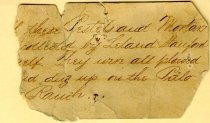 these Pestel and Mortars
collected by Leland Stanford
self. They were all plowed
and dug up on the Palo
Ranch.